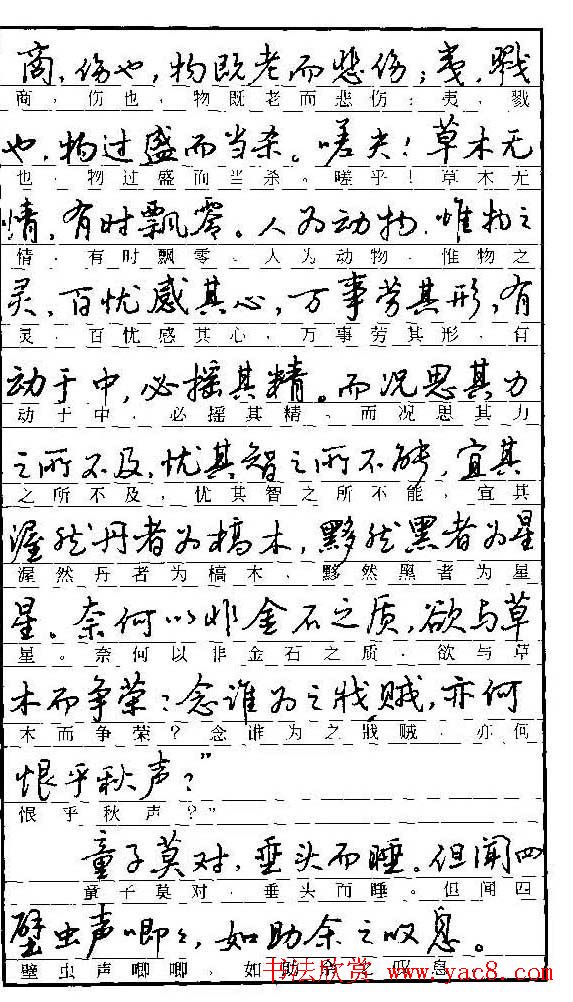 商,伤也,物既老而悲伤;夷,戮
商,伤也,物既老而悲伤;夷,戮
也,物过盛而当杀。嗟夫!草木无
也,物过盛而当杀。嗟乎!草木无
情,有时飘零。人为动物,惟物之
情,有时飘零。人为动物,惟物之
灵,百忧感其心,万事劳其形,有
灵,百忧感其心,万事劳其形,有
动于中,必摇其精。而况思其力
动于中,必摇其精。而况思其力
之所不及,忧其智之所不能,宜其
之所不及,忧其智之所不能,宜其
渥然丹者为槁木,黟然黑者为星
渥然丹者为槁木,黟然黑者为星
星。奈何以非金石之质,欲与草
星。奈何以非金石之质,欲与草
木而争荣?念谁为之戕贼,亦何
木而争荣?念谁为之戕贼,亦何
恨乎秋声?”
恨乎秋声?”
童子莫对,垂头而睡。但闻四
童子莫对,垂头而睡。但闻四
壁虫声唧々,如助余之叹息。
壁虫声唧唧,如助 叹息
书法欣赏 www.yac8.com